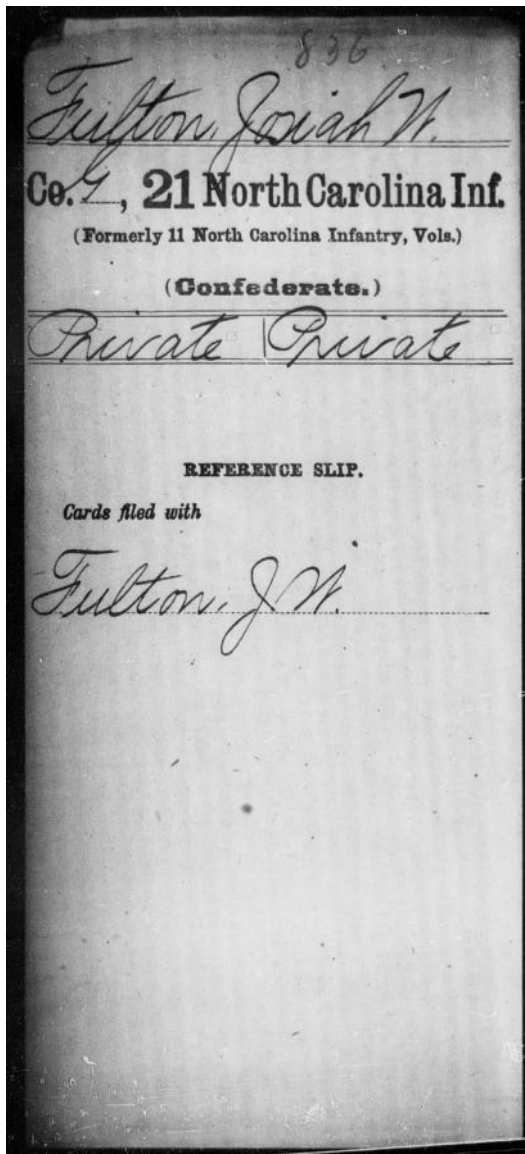 836
Fulton, Josiah W.
Co. G, 21 North Carolina Inf.
(Formerly 11 North Carolina Infantry, Vols.)
(Confederate.)
Private | Private
REFERENCE SLIP.
Cards filed with
Fulton, J. W.